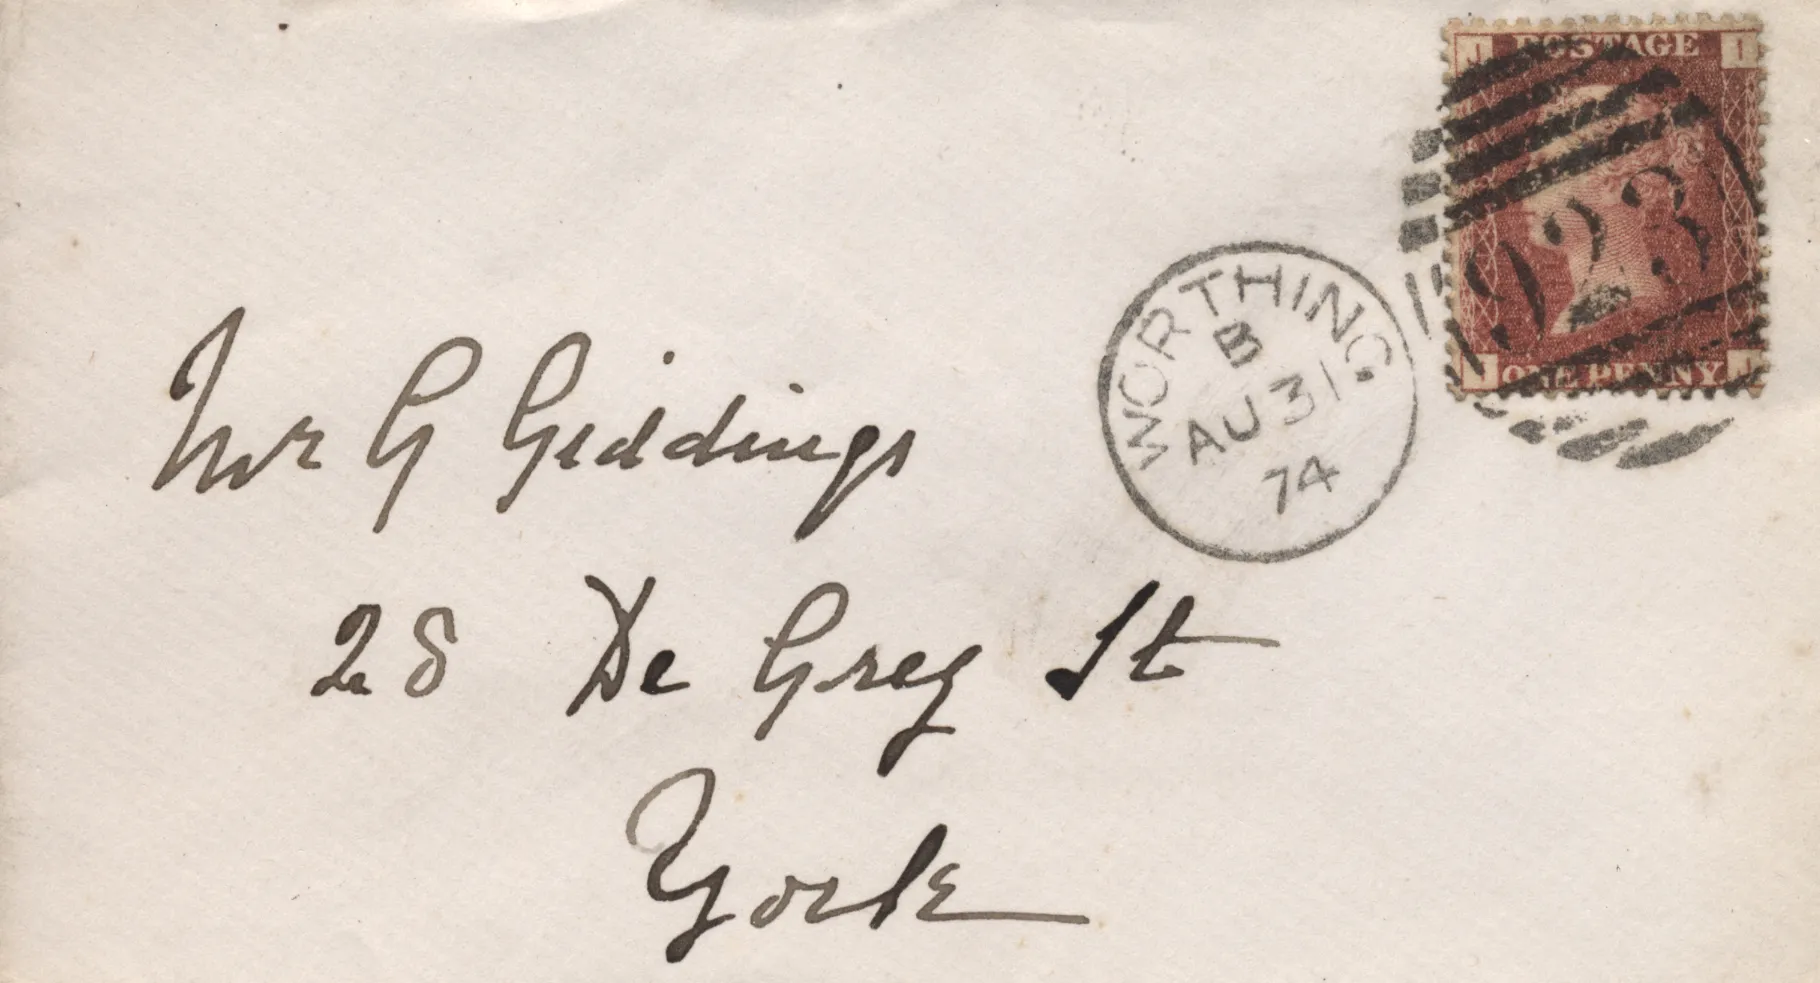 POSTAGE
923
ONE PENNY
WORTHING
B
AU 31
74
Mr G Giddings
28 De Grey St
York